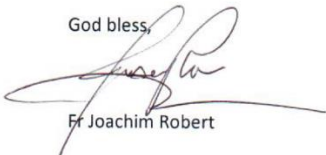 God bless,
Fr Joachim Robert